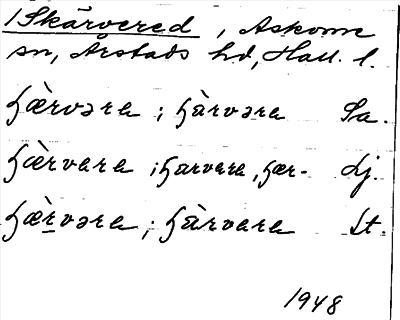 1 Skärvered, Askome
sn, Årstads hd, Hall. l.
ʃæ̀rvəra ; ʃàrvəra Sa.
ʃæ̀rvara ; ʃarvara, ʃær- Lj.
ʃæ̀rvəra ; ʃàrvara Lt.
1948